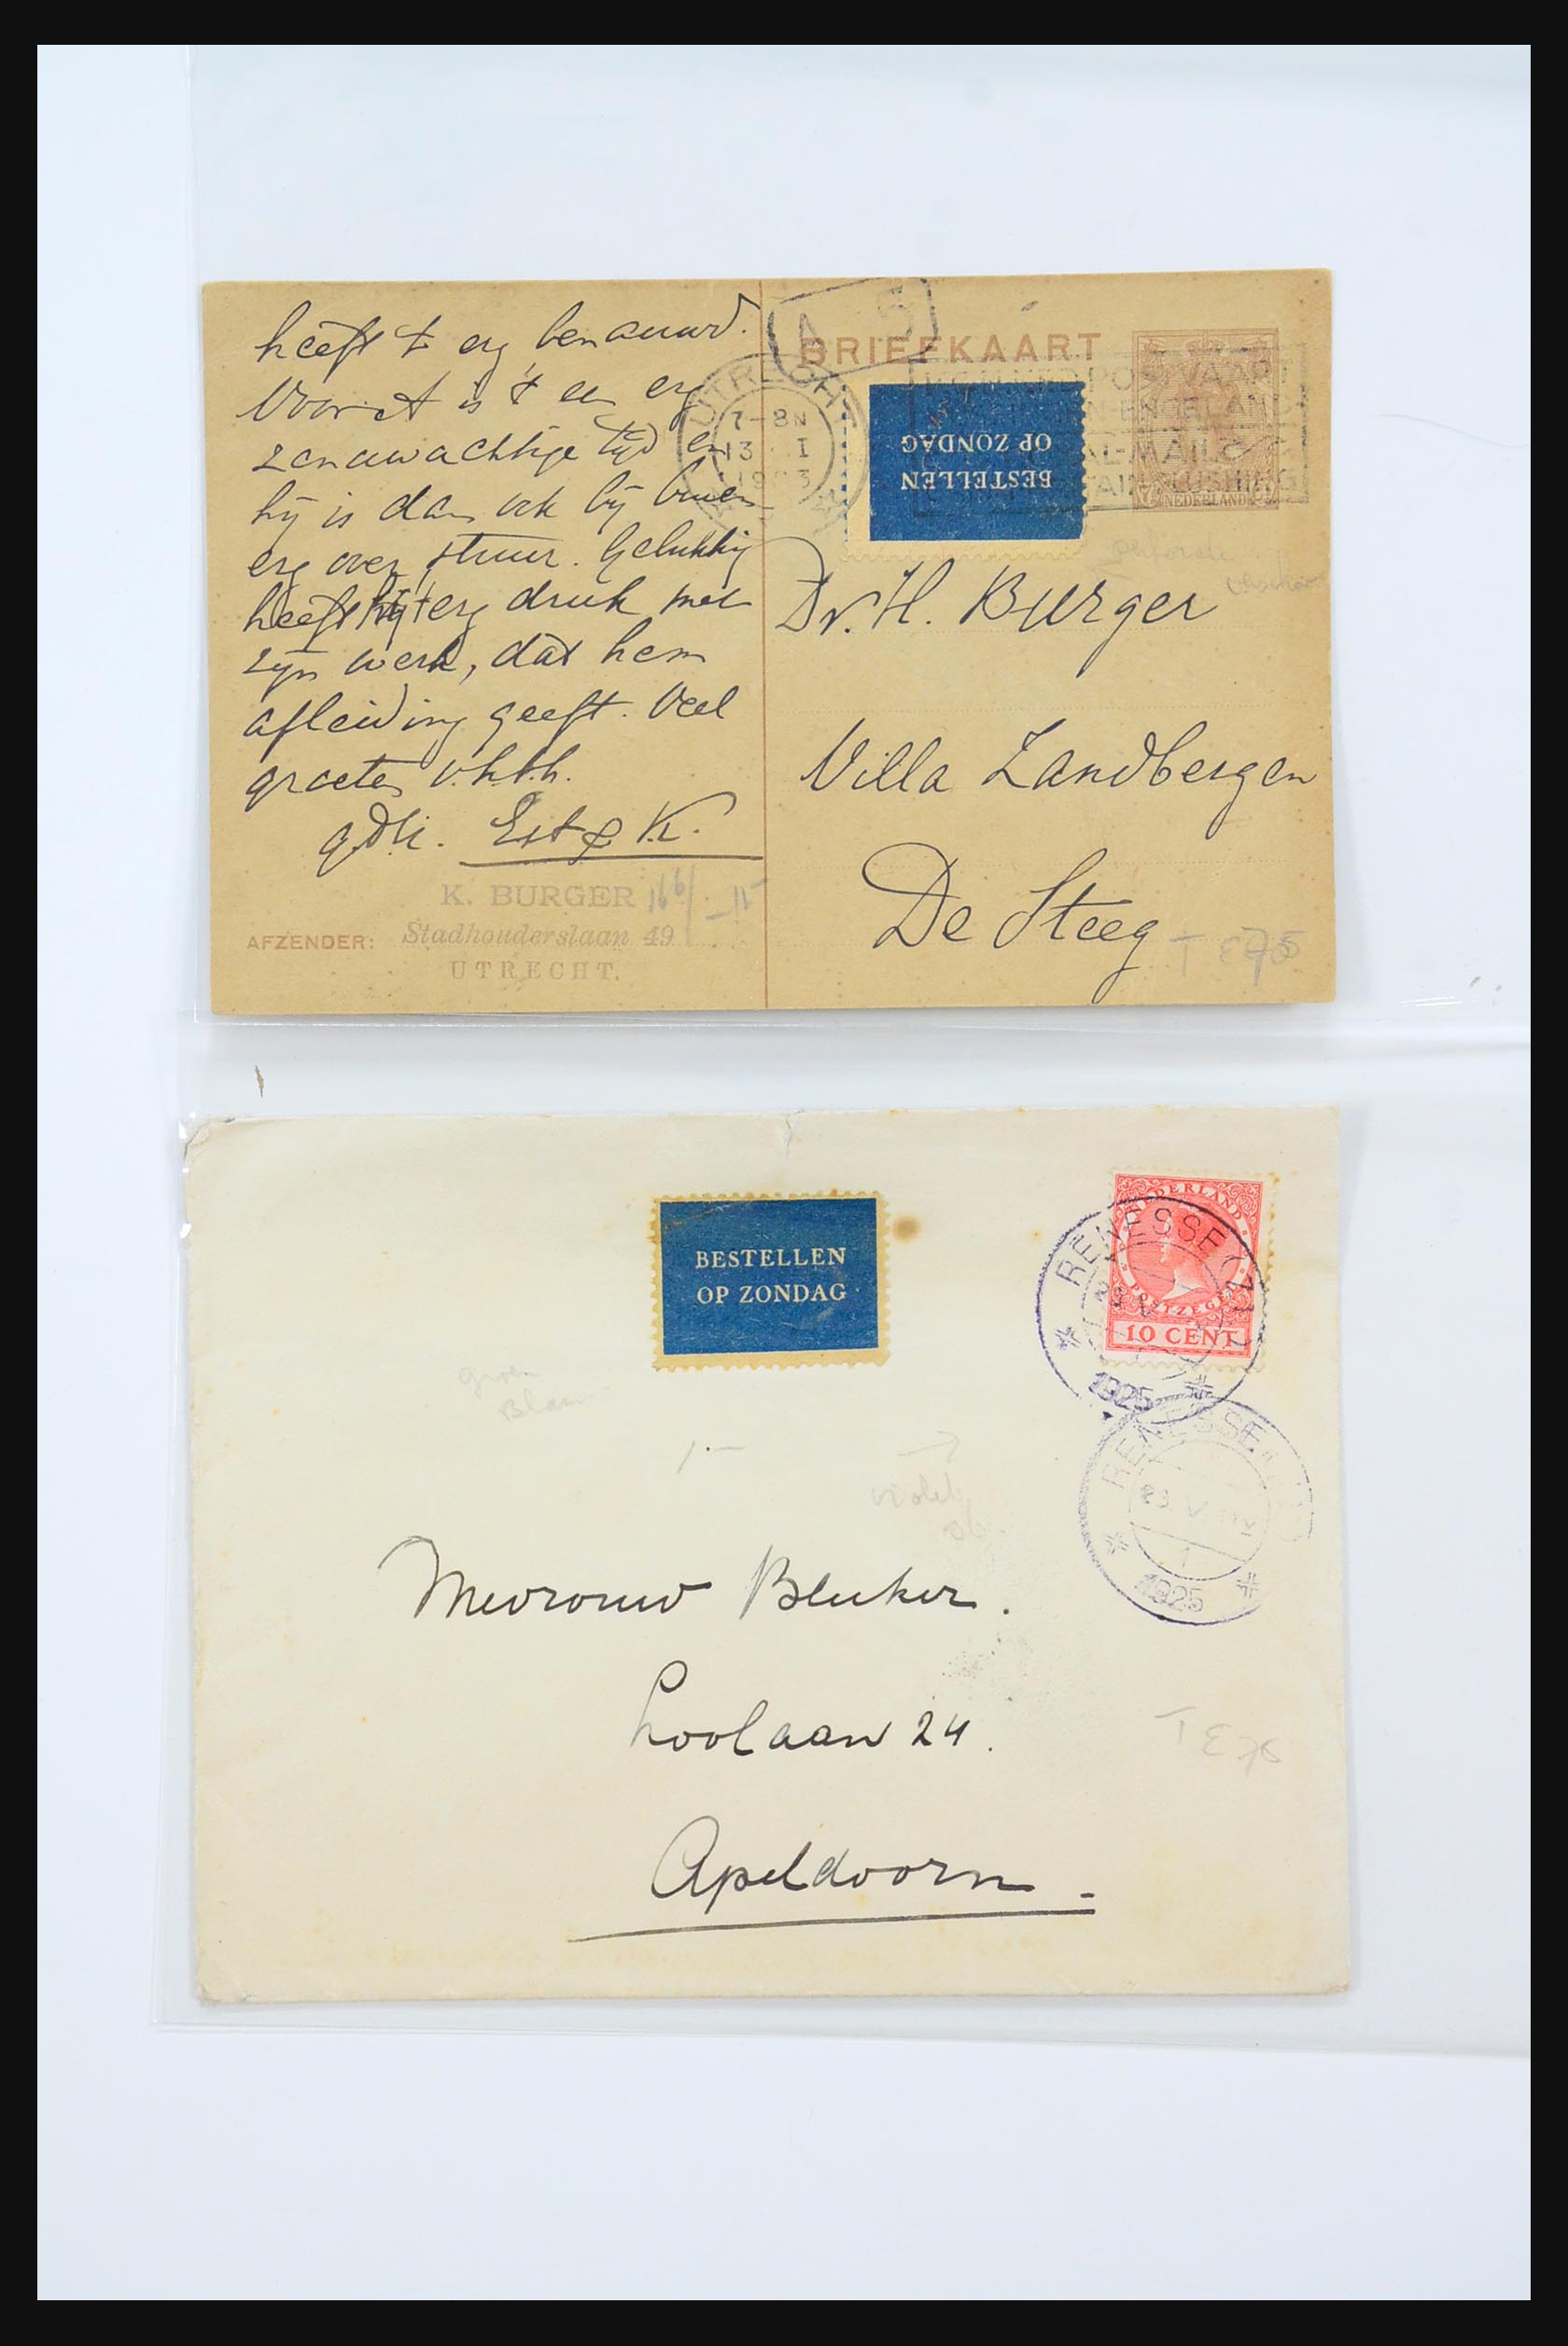 heeft 't erg benauwd.
Voor A is 't een erg
zenuwachtige tijd en
hij is dan ook bij buien
erg over stuur. Gelukkig
heeft hij 't erg druk met
zijn werk, dat hem
afleiding geeft. Veel
groeten v.h.t.h.
Est & K.
K. BURGER
AFZENDER: Stadhouderslaan 49
UTRECHT.
BRIEFKAART
UTRECHT
7-8N
13 I
NEDERLAND
BESTELLEN
OP ZONDAG
Dr. H. Burger
Villa Zandbergen
De Steeg
T E 75
BESTELLEN
OP ZONDAG
NEDERLAND
POSTZEGEL
10 CENT
RENESSE
1925
RENESSE
23 V
1
1925
groen
Blauw
violet
Mevrouw Bleeker.
Loolaan 24.
Apeldoorn.
T E 75